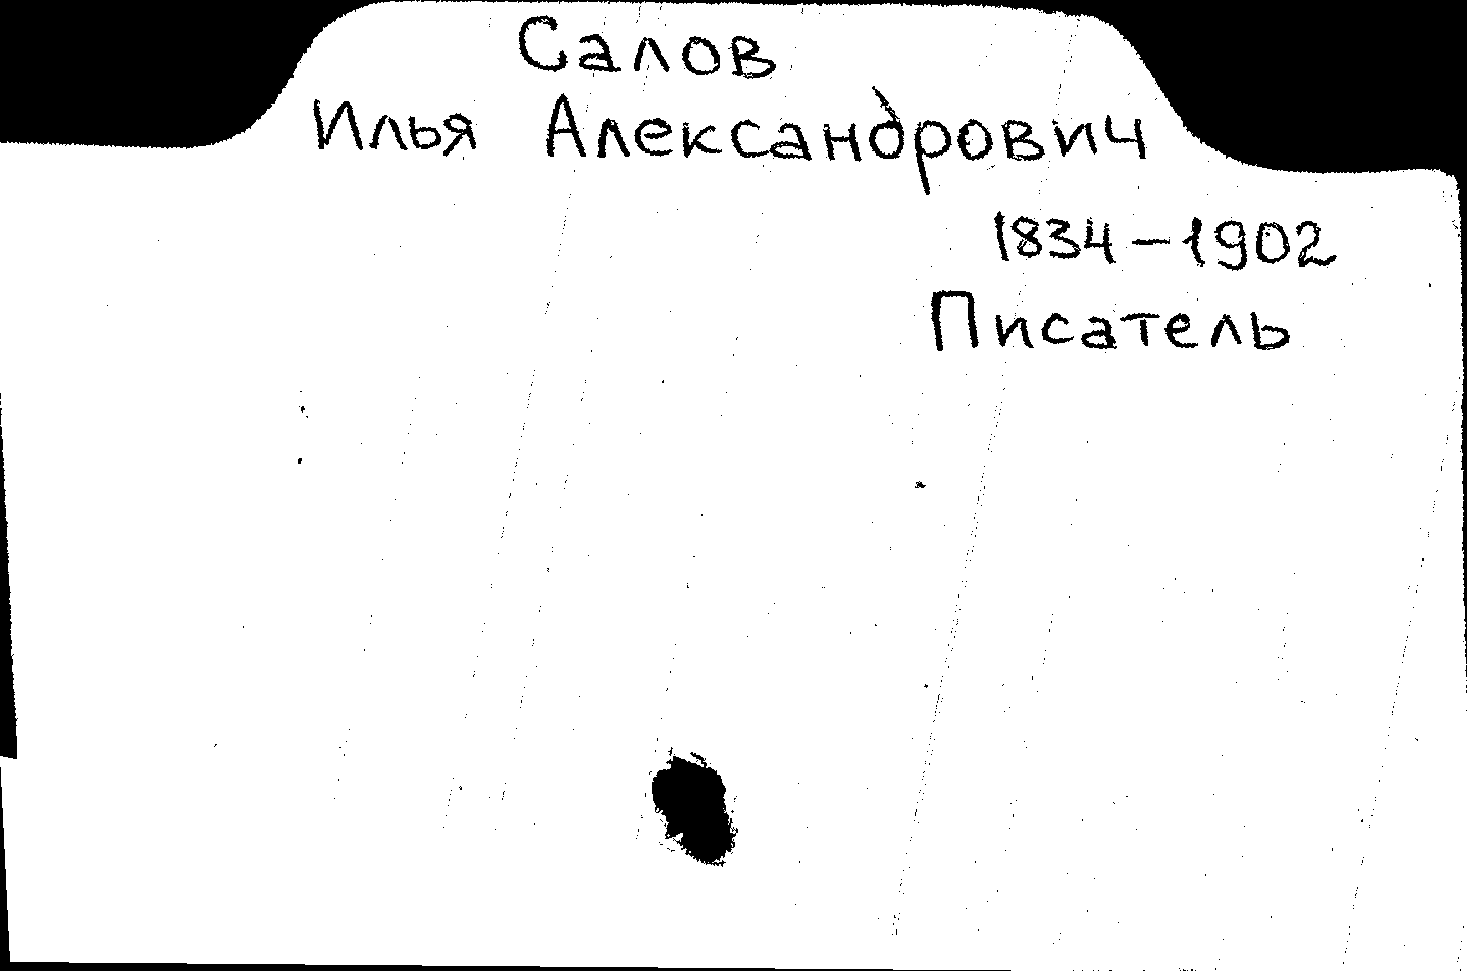 Салов
Илья Александрович
1834 – 1902
Писатель